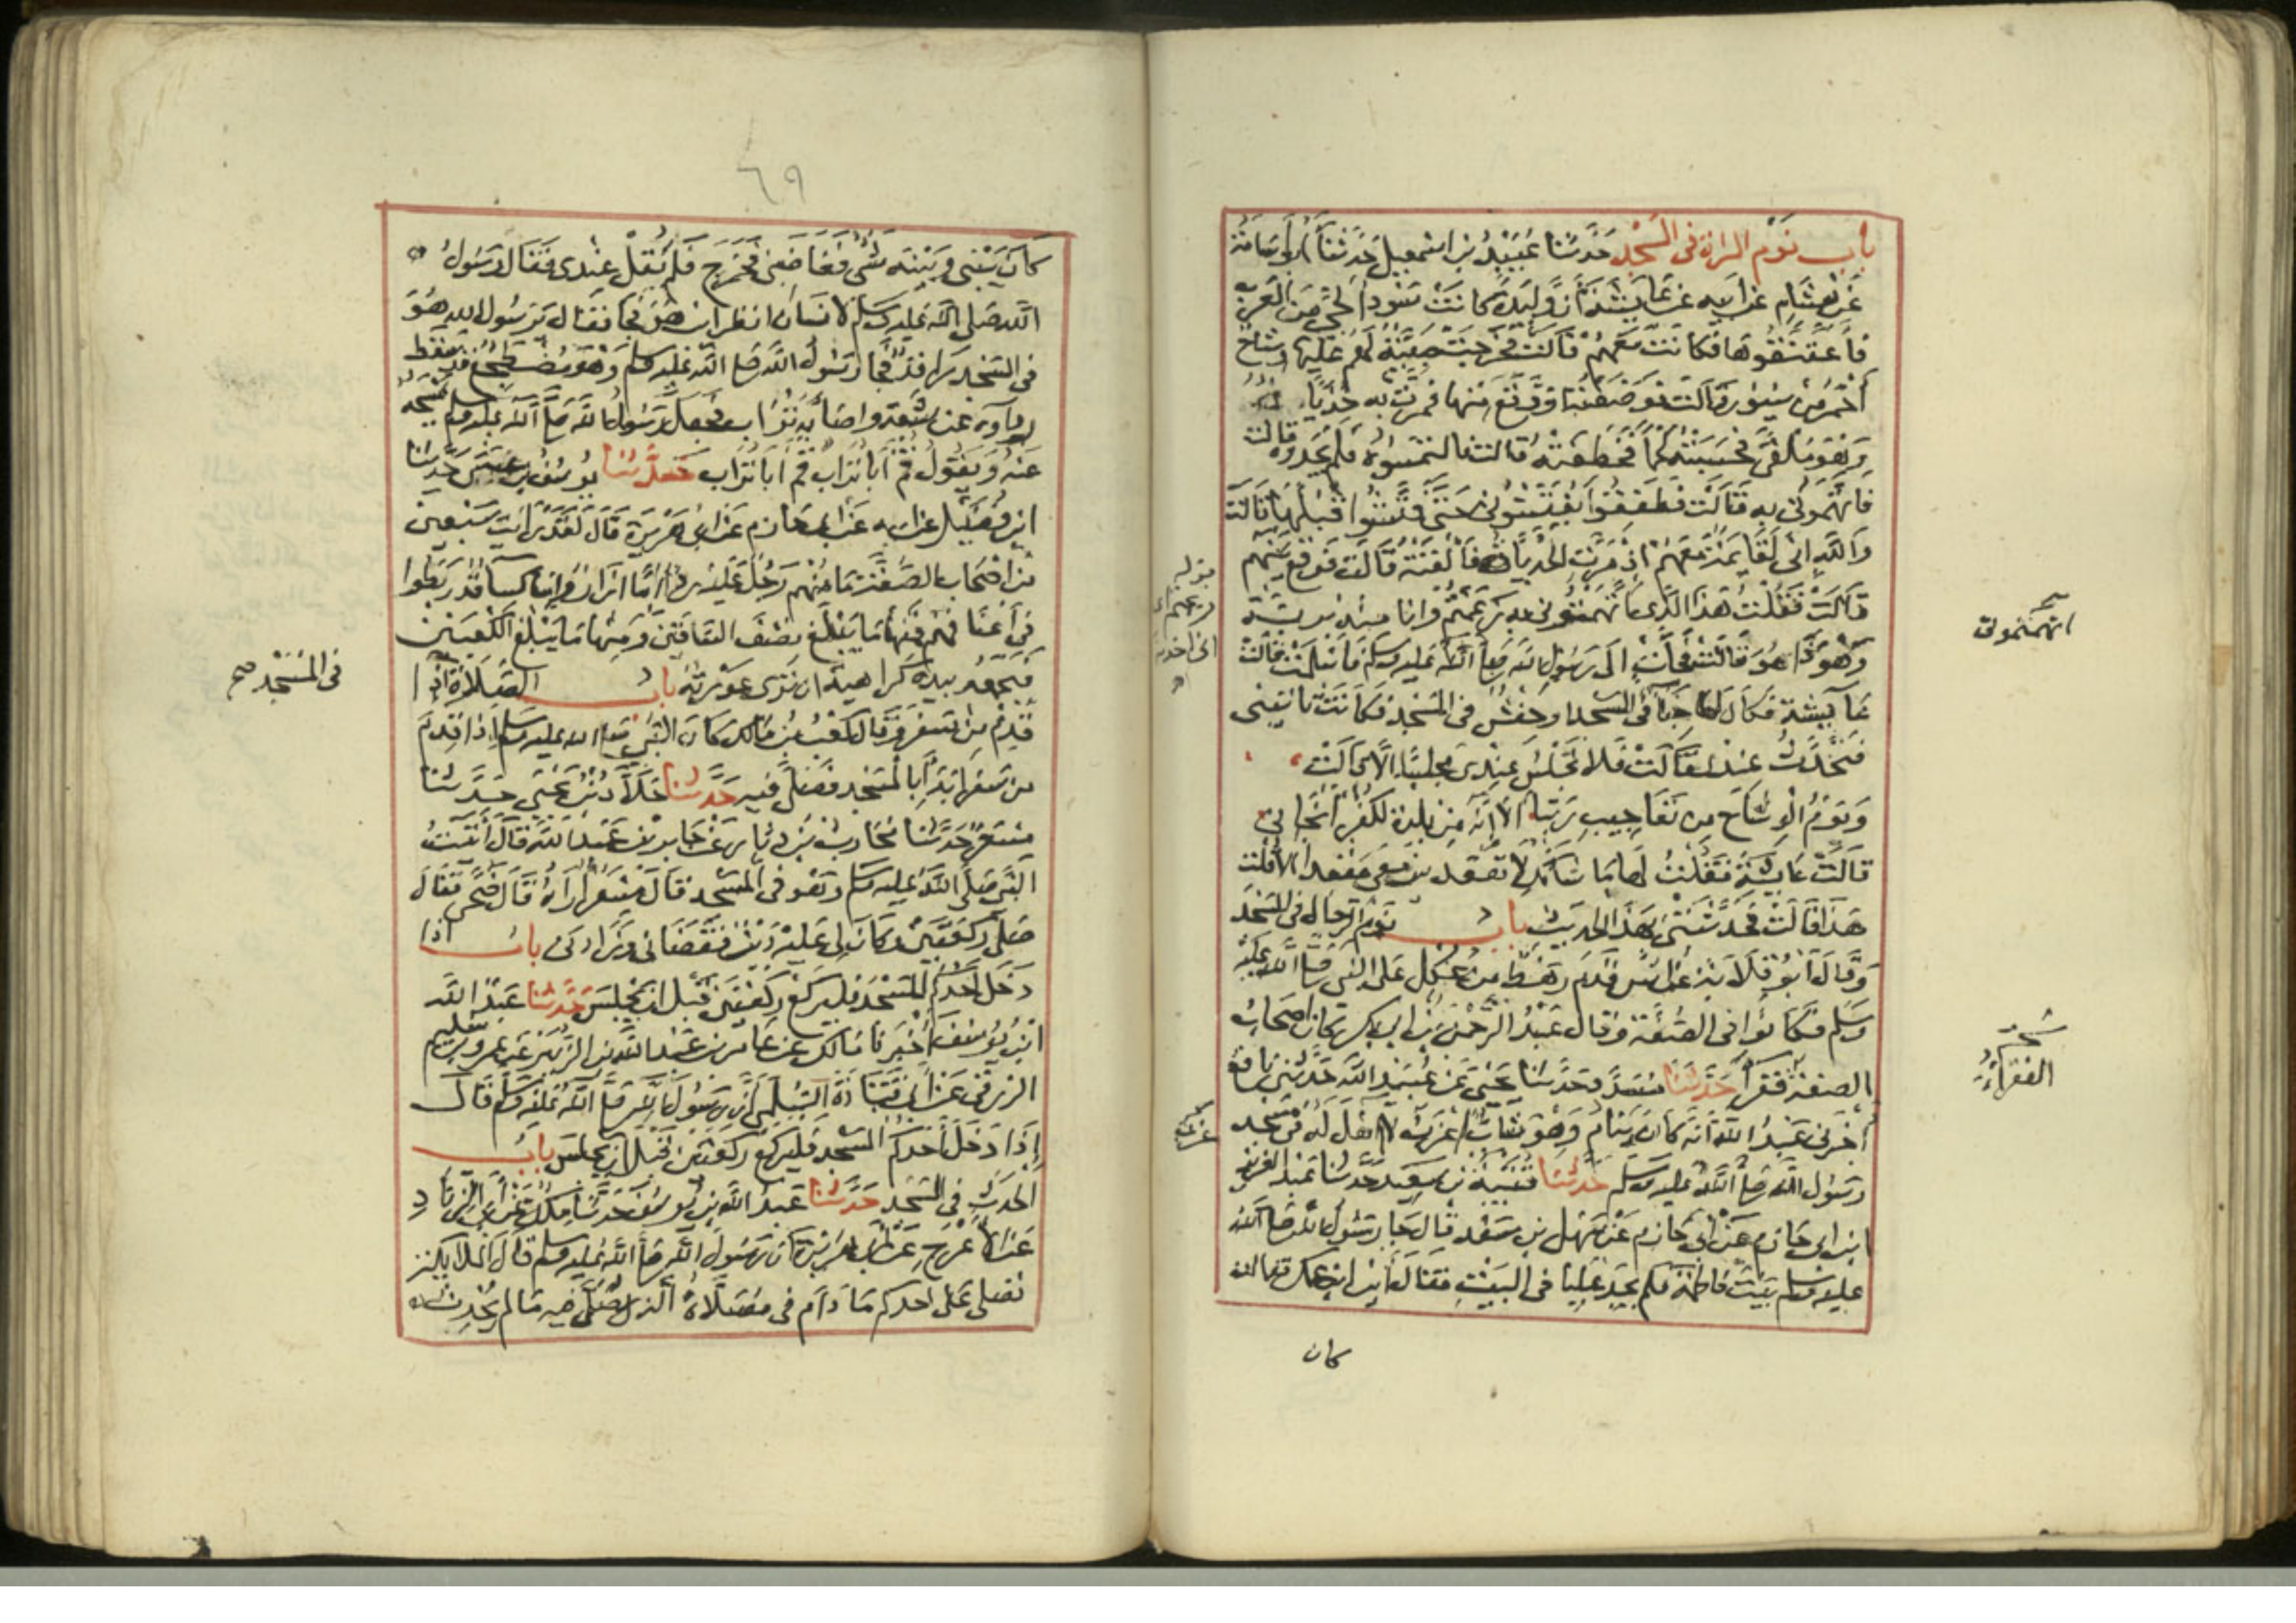 باب نوم المرأة في المسجد حدثنا عبيد بن اسمعيل حدثنا ابو اسامة
عن هشام عن ابيه عن عايشة أن وليدة كانت سودا لحي من العرب
فأعتقوها فكانت معهم قالت فخرجت صبية لهم عليها وشاح
أحمر من سيور قالت فوضعته او وقع منها فمرت به حدياة
وهو ملقى فحسبته لحما فخطفته قالت فالتمسوه فلم يجدوه قالت
فاتهموني به قالت فطفقوا يفتشوني حتى فتشوا قبلها قالت
والله اني لقايمة معهم اذ مرت الحدياة فألقته قالت فوقع بينهم
قالت فقلت هذا الذي اتهمتموني به زعمتم وانا منه بريئة
وهو ذا هو قالت فجأت الى رسول الله صلى الله عليه وسلم فاسلمت قالت
عايشة فكان لها خبأ في المسجد او حفش في المسجد فكانت تاتيني
فتحدث عندي قالت فلا تجلس عندي مجلسا الا قالت
ويوم الوشاح من تعاجيب ربنا الا انه من بلدة الكفر انجاني
قالت عايشة فقلت لها ما شانك لا تقعدين معي مقعدا الا قلت
هذا قالت فحدثتني بهذا الحديث باب نوم الرجال في المسجد
وقال ابو قلابة عن انس قدم رهط من عكل على النبي صلى الله عليه
وسلم فكانوا في الصفة وقال عبد الرحمن بن ابي بكر كان اصحاب
الصفة فقرا حدثنا مسدد حدثنا يحيى عن عبيد الله حدثني نافع
أخبرني عبد الله انه كان ينام وهو شاب اعزب لا اهل له في مسجد
رسول الله صلى الله عليه وسلم حدثنا قتيبة بن سعيد حدثنا عبد العزيز
ابن ابي حازم عن ابي حازم عن سهل بن سعد قال جا رسول الله صلى الله
عليه وسلم بيت فاطمة فلم يجد عليا في البيت فقال أين ابن عمك قالت
كان
اتهمتموني
الفقراء
٦٩
كان بيني وبينه شي فغاضبني فخرج فلم يقل عندي فقال رسول
الله صلى الله عليه وسلم لانسان انظر اين هو فجا فقال يرسول الله هو
في المسجد راقد فجا رسول الله صلى الله عليه وسلم وهو مضطجع قد سقط
رداوه عن شقه واصابه تراب فجعل رسول الله صلى الله عليه وسلم يمسحه
عنه ويقول قم أبا تراب قم أبا تراب حدثنا يوسف بن عيسى حدثنا
ابن فضيل عن ابيه عن ابي حازم عن ابي هريرة قال لقد رايت سبعين
من اصحاب الصفة ما منهم رجل عليه ردا اما ازار واما كسا قد ربطوا
في أعناقهم فمنها ما يبلغ نصف الساقين ومنها ما يبلغ الكعبين
فيجمعه بيده كراهية ان ترى عورته باب الصلاة اذا
قدم من سفر وقال كعب بن مالك كان النبي صلى الله عليه وسلم اذا قدم
من سفر بدأ بالمسجد فصلى فيه حدثنا خلاد بن يحيى حدثنا
مسعر حدثنا محارب بن دثار عن جابر بن عبد الله قال أتيت
النبي صلى الله عليه وسلم وهو في المسجد قال مسعر اراه قال ضحى فقال
صلي ركعتين وكان لي عليه دين فقضاني وزادني باب اذا
دخل أحدكم المسجد فليركع ركعتين قبل ان يجلس حدثنا عبد الله
ابن يوسف أخبرنا مالك عن عامر بن عبد الله بن الزبير عن عمرو بن سليم
الزرقي عن أبي قتادة السلمي أن رسول الله صلى الله عليه وسلم قال
إذا دخل أحدكم المسجد فليركع ركعتين قبل ان يجلس باب
الحدث في المسجد حدثنا عبد الله بن يوسف حدثنا ملك عن أبي الزناد
عن الاعرج عن ابي هريرة ان رسول الله صلى الله عليه وسلم قال الملايكة
تصلي على احدكم ما دام في مصلاه الذي صلى فيه ما لم يحدث
في المسجد صح